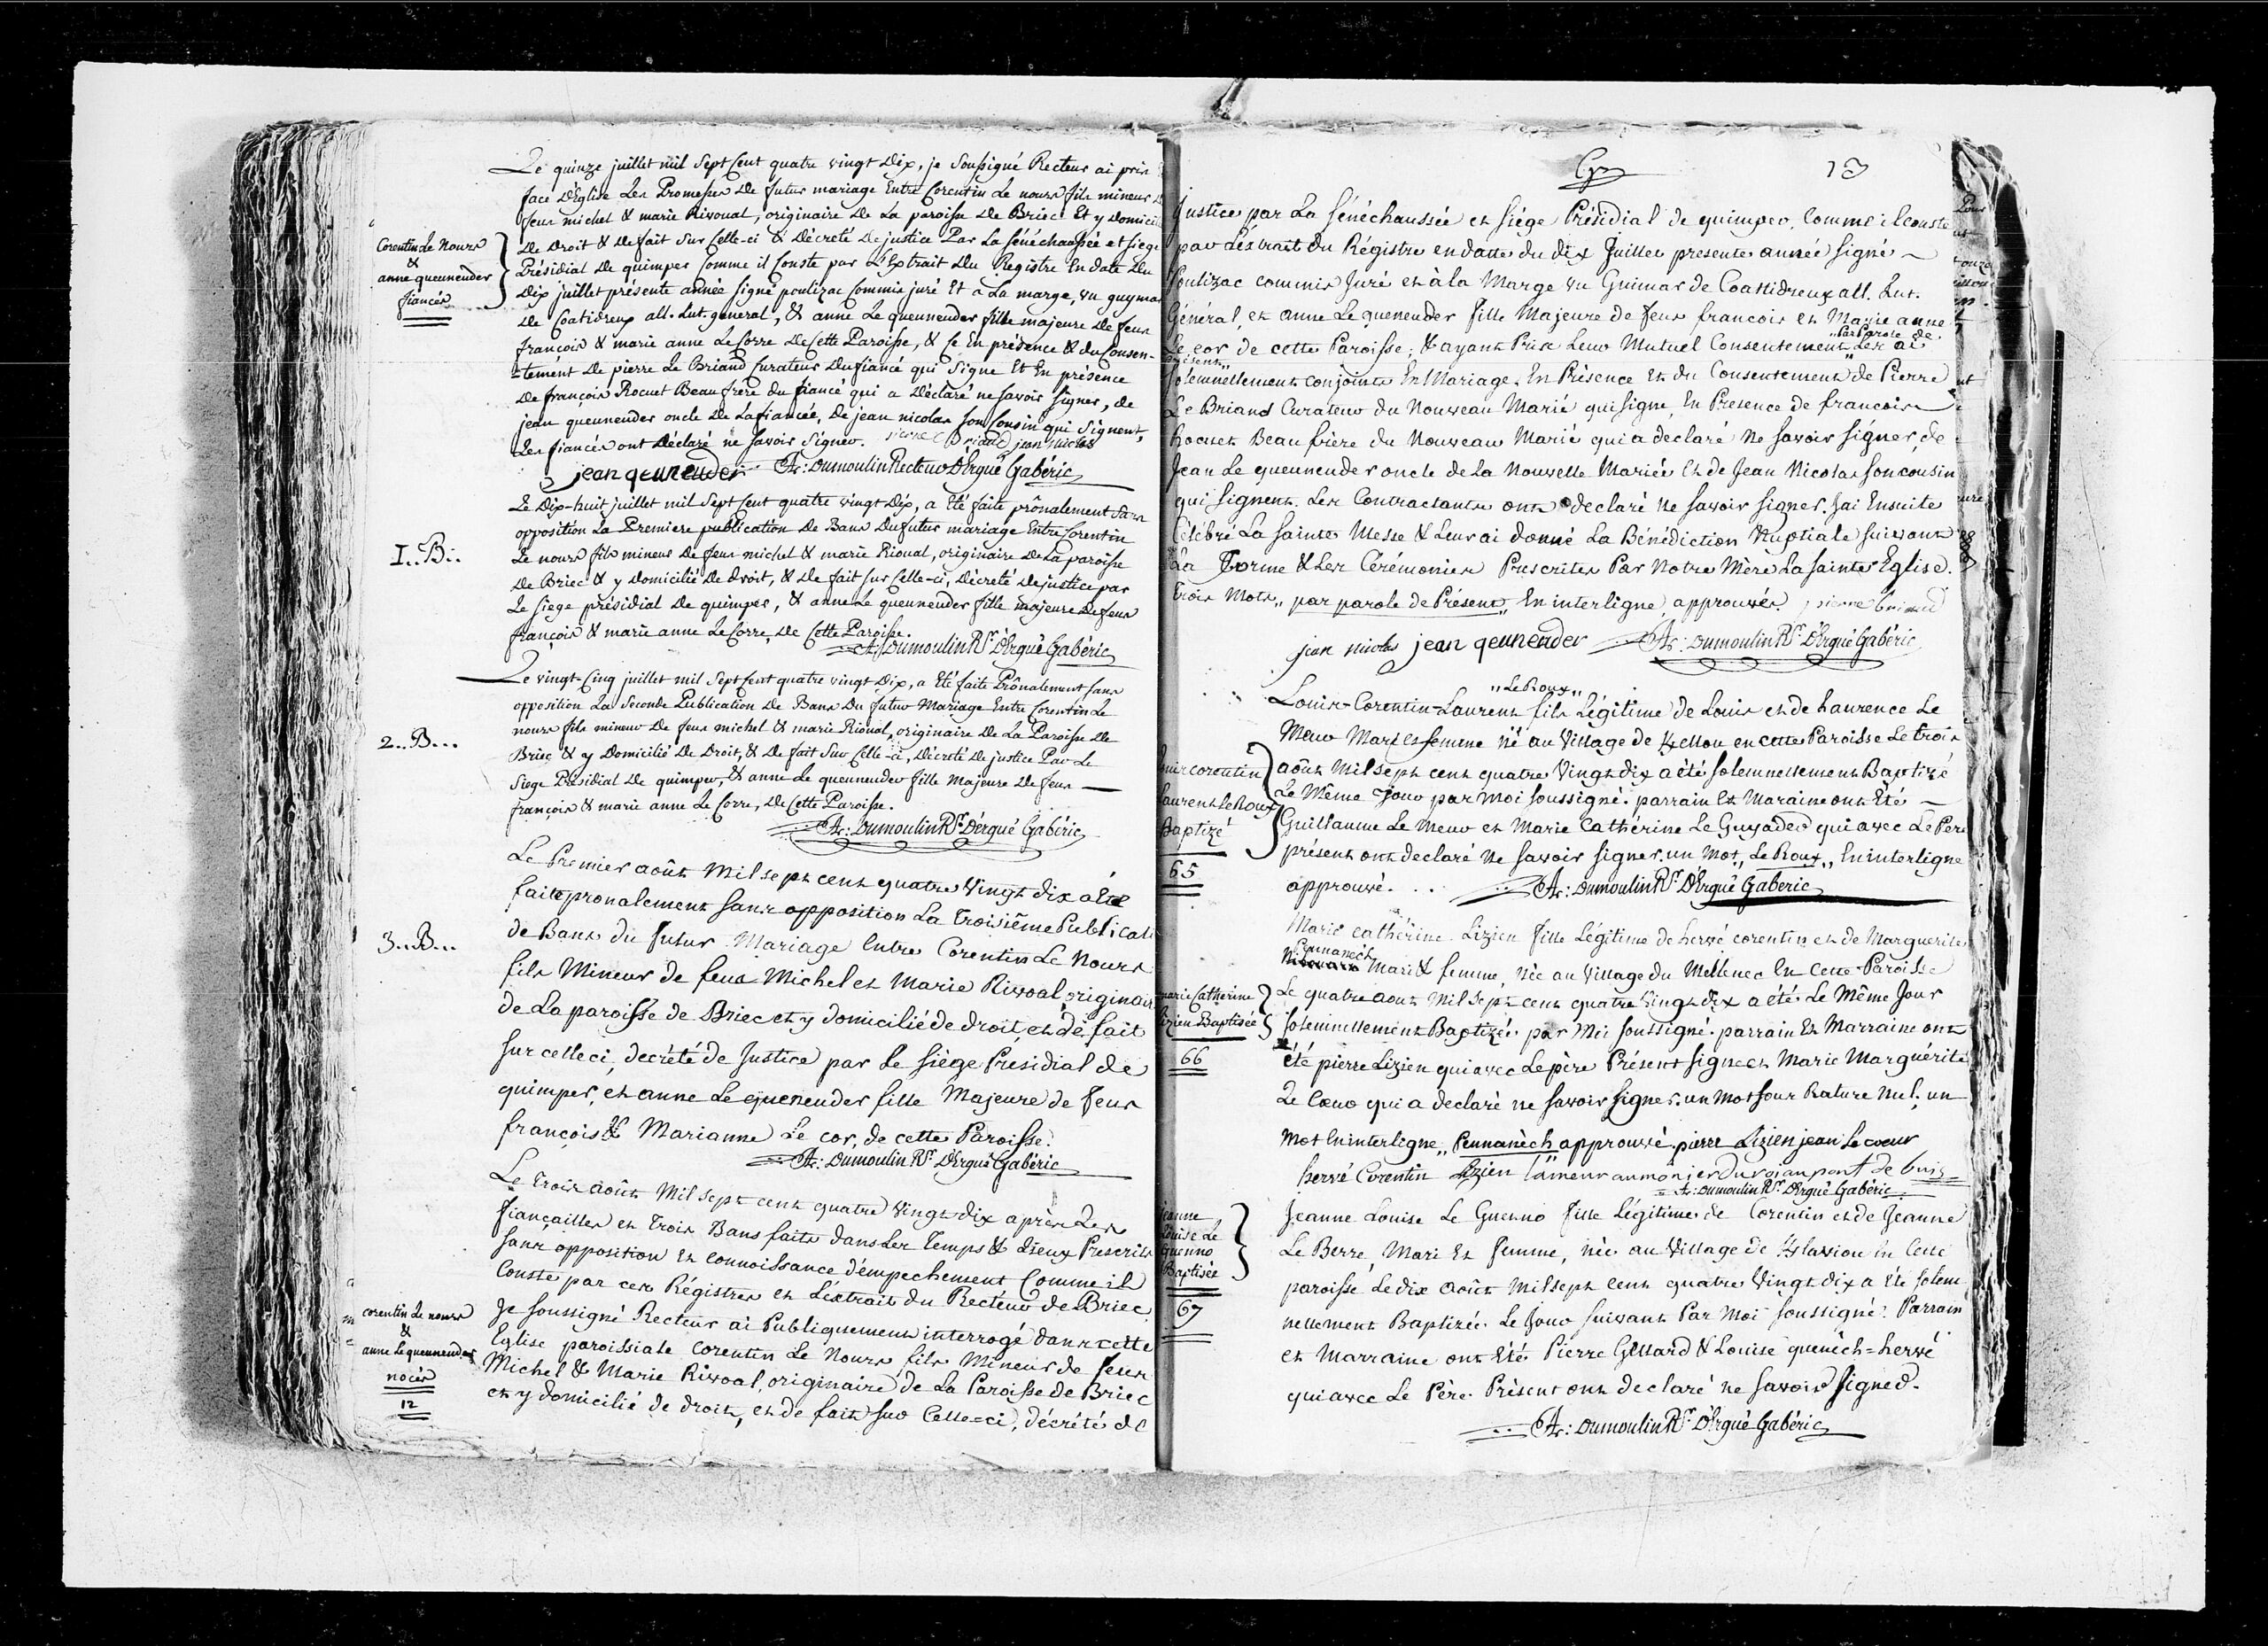 Le quinze juillet mil Sept Cent quatre vingt Dix, je Soussigné Recteur ai pris
face D'Eglise Les Promesses De futur mariage Entre Corentin Le nours fils mineur
feus michel & marie Rivoual, originaire De La paroisse De Briec Et y Domici
Corentin Le Nours
&
anne queuneuder
fiancés
De Droit & De fait Sur Celle-ci & Décreté De justice Par La Sénéchaussée et siege
Présidial De quimper Comme il Conste par L'Extrait Du Registre En date Du
Dix juillet présente année signé poulizac Commis juré Et a La marge, vu guymar
De Coatidreux all. Lut. general, & anne Le queuneuder fille majeure De feus
françois & marie anne Le Corre De Cette Paroisse, & Ce En présence & du Consen-
=tement De pierre Le Briand Curateur Du fiancé qui Signe Et En présence
De françois Rocuet Beau frère du fiancé qui a Déclaré ne Savoir signer, de
jean queuneuder oncle De La fiancée, De jean nicolas Son Cousin qui Signent,
Les fiancés ont Déclaré ne savoir Signer. pierre Briand jean nicolas
jean qeuneuder A: Dumoulin Recteur D'Ergué Gabéric
1..B..
Le Dix-huit juillet mil Sept Cent quatre vingt Dix, a Eté faite prônalement Sans
opposition La Premiere publication De Bans Du futur mariage Entre Corentin
Le nours fils mineur De feus michel & marie Rioual, originaire De La paroisse
De Briec & y Domicilié De Droit, & De fait Sur Celle-ci, Décreté De justice par
Le Siege présidial De quimper, & anne Le queuneuder fille majeure De feus
françois & marie anne Le Corre, De Cette Paroisse.
A: Dumoulin Rr D'Ergué Gabéric
Le vingt-Cinq juillet mil Sept Cent quatre vingt Dix, a Eté faite Prônalement Sans
opposition La Seconde Publication De Bans Du futur Mariage Entre Corentin Le
2..B...
nours fils mineur De feus michel & marie Rioual, originaire De La Paroisse De
Briec & y Domicilié De Droit, & De fait Sur Celle-ci, Décreté De justice Par Le
Siege Présidial De quimper, & anne Le queuneuder fille Majeure De feus
françois & marie anne Le Corre, De Cette Paroisse.
A: Dumoulin Rr D'Ergué Gabéric
Le Premier août Mil sept cent quatre Vingt dix a Eté
faite pronalement sans opposition La troisième Publicati
3..B...
de Bans du futur Mariage Entre Corentin Le Nours
fils Mineur de feus Michel et Marie Rivoal originair
de La paroisse de Briec et y domicilié de droit, et de fait
sur celle ci, decrété de Justice par Le Siège Présidial de
quimper, et anne Le queneuder fille Majeure de feus
françois & Marianne Le cor, de cette Paroisse.
A: Dumoulin Rr D'Ergué Gabéric
Le trois août Mil Sept cent quatre Vingt dix après Les
fiançailles et trois Bans faits dans Les temps & Lieux Prescrits
sans opposition et connoissance d'empechement Comme il
Conste par ces Régistres et L'extrait du Recteur de Briec
corentin Le nours
&
anne Le queuneuder
nocés
12
Je soussigné Recteur ai Publiquement interrogé dans cette
Eglise paroissiale Corentin Le Nours fils Mineur de feus
Michel & Marie Rivoal, originaire de La Paroisse de Briec
et y domicilié de droit, et de fait sur Celle=ci, décrété de
13
Justice par La Sénéchaussée et Siége Présidial de quimper, Comme il conste
par L'éxtrait du Régistre en datte du dix Juillet presente année signé
Poulizac commis Juré et à La Marge vu Guimar de Coattidreux all. Lut.
Général, et anne Le queneuder fille Majeure de feus francois et Marie anne
Le cor de cette Paroisse; & ayant Pris Leur Mutuel Consentement Les ai
„Par Parole de
Présent„
Solemnellement conjoints En Mariage. En Présence Et du Consentement de Pierre
Le Briand Curateur du Nouveau Marié qui signe, En Presence de francois
Rocuet Beau frère du Nouveau Marié qui a declaré Ne savoir signer, de
Jean Le queuneuder oncle de La Nouvelle Mariée et de Jean Nicolas son cousin
qui signent. Les Contractants ont declaré Ne savoir signer. J'ai Ensuite
Célébré La sainte Messe & Leur ai donné La Bénédiction Nuptiale suivant
La Forme & Les Cérémonies Prescrites Par Notre Mère La sainte Eglise.
trois Mots „ par parole de Présent „ En interligne approuvés. pierre briand
jean nicolas jean qeuneuder A: Dumoulin Rr D'Ergué Gabéric
„Le Roux„
Louis-Corentin-Laurent fils Légitime de Louis et de Laurence Le
Meur Mari et femme Né au Village de Kellou en cette Paroisse Le trois
Louis corentin
Laurent Le Roux
Baptizé
65
août Mil sept cent quatre Vingt dix a été solemnellement Baptizé
Le Même Jour par Moi soussigné. parrain Et Maraine ont Eté
Guillaume Le Meur et Marie Cathérine Le Guyader qui avec Le Pere
présent ont declaré Ne savoir signer. un Mot „ Le Roux „ En interligne
approuvé. A: Dumoulin Rr D'Ergué Gaberic
Marie cathérine Lizien fille Légitime de hervé corentin et de Marguerite
Pennanèch
Mari & femme, née au Village du Mellenec En Cette Paroisse
Marie Catherine
Lizien Baptisée
66
Le quatre aout Mil sept cent quatre Vingt dix a été Le Même Jour
solemnellement Baptizée par Moi soussigné. parrain Et Marraine ont
été pierre Lizien qui avec Le père Présent signe et Marie Marguérite
Le Cœur qui a declaré ne savoir signer. un Mot sous Rature Nul, un
Mot En interligne „ Pennanèch „ approuvé. pierre Lizien jean Le coeur
hervé Corentin Lizien
A: Dumoulin Rr D'Ergué Gabéric
Jeanne
Louise Le
Guenno
Baptisée
67
Jeanne Louise Le Guenno fille Légitime de Corentin et de Jeanne
Le Berre, Mari Et femme, née au Village de Klaviou En Cette
paroisse Le dix août Mil sept cent quatre Vingt dix a Eté solem
nellement Baptizée Le Jour suivant Par Moi soussigné. Parrain
et Marraine ont Eté Pierre Gellard & Louise quenèch=hervé
qui avec Le Père Présent ont declaré ne savoir signer.
A: Dumoulin Rr D'Ergué Gabéric